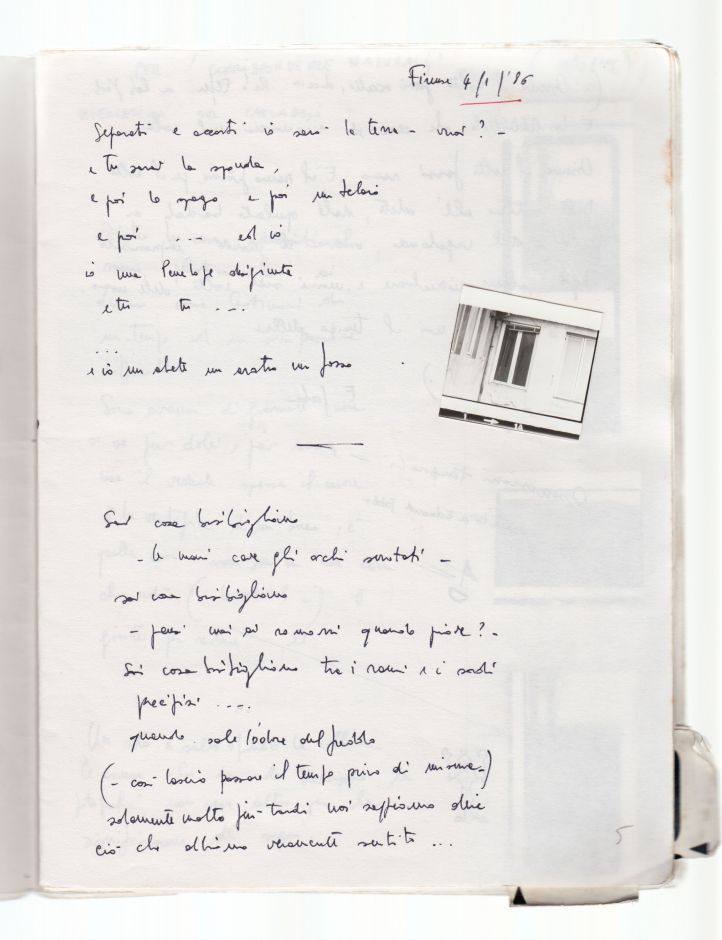 Firenze 4/1/'86
Separati e assorti io sarò la terra - vuoi? -
e tu sarai la sponda,
e poi lo spago e poi un telaio
e poi .... ed io
io una Penelope
e tu tu ....
...
e io un abete un un fosso
Sai cosa bisbigliano
- le mani cave gli occhi svuotati -
sai cosa bisbigliano
- pensi mai ai rumori quando piove? -
Sai cosa bisbigliano tra i rami e i sordi
precipizi ....
quando sale l'odore del freddo
(- così lascio passare il tempo privo di misura -)
solamente molto più tardi noi sappiamo dire
ciò che abbiamo veramente sentito ...
1 → 1A
5